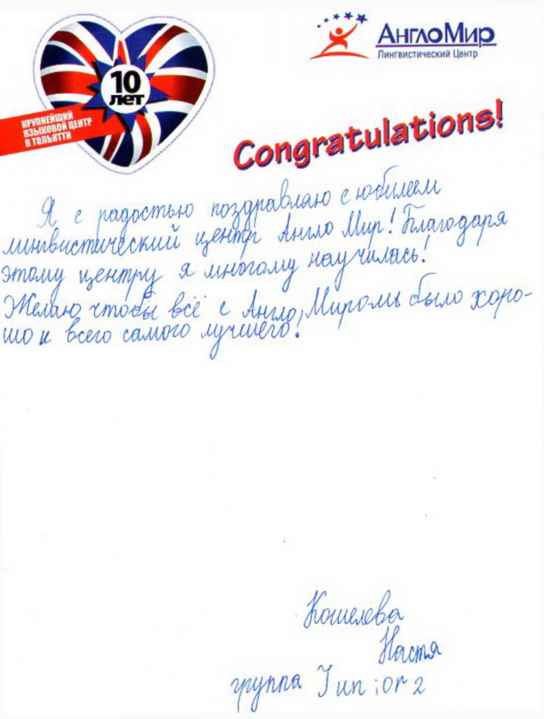 10
лет
КРУПНЕЙШИЙ
ЯЗЫКОВОЙ ЦЕНТР
В ТОЛЬЯТТИ
АнглоМир
Лингвистический Центр
Congratulations!
Я с радостью поздравляю с юбилеем
лингвистический центр Англо Мир! Благодаря
этому центру я многому научилась!
Желаю, чтобы всё с Англо Миромь было хоро-
шо и всего самого лучшего!
Кошелева
Настя
группа Junior 2